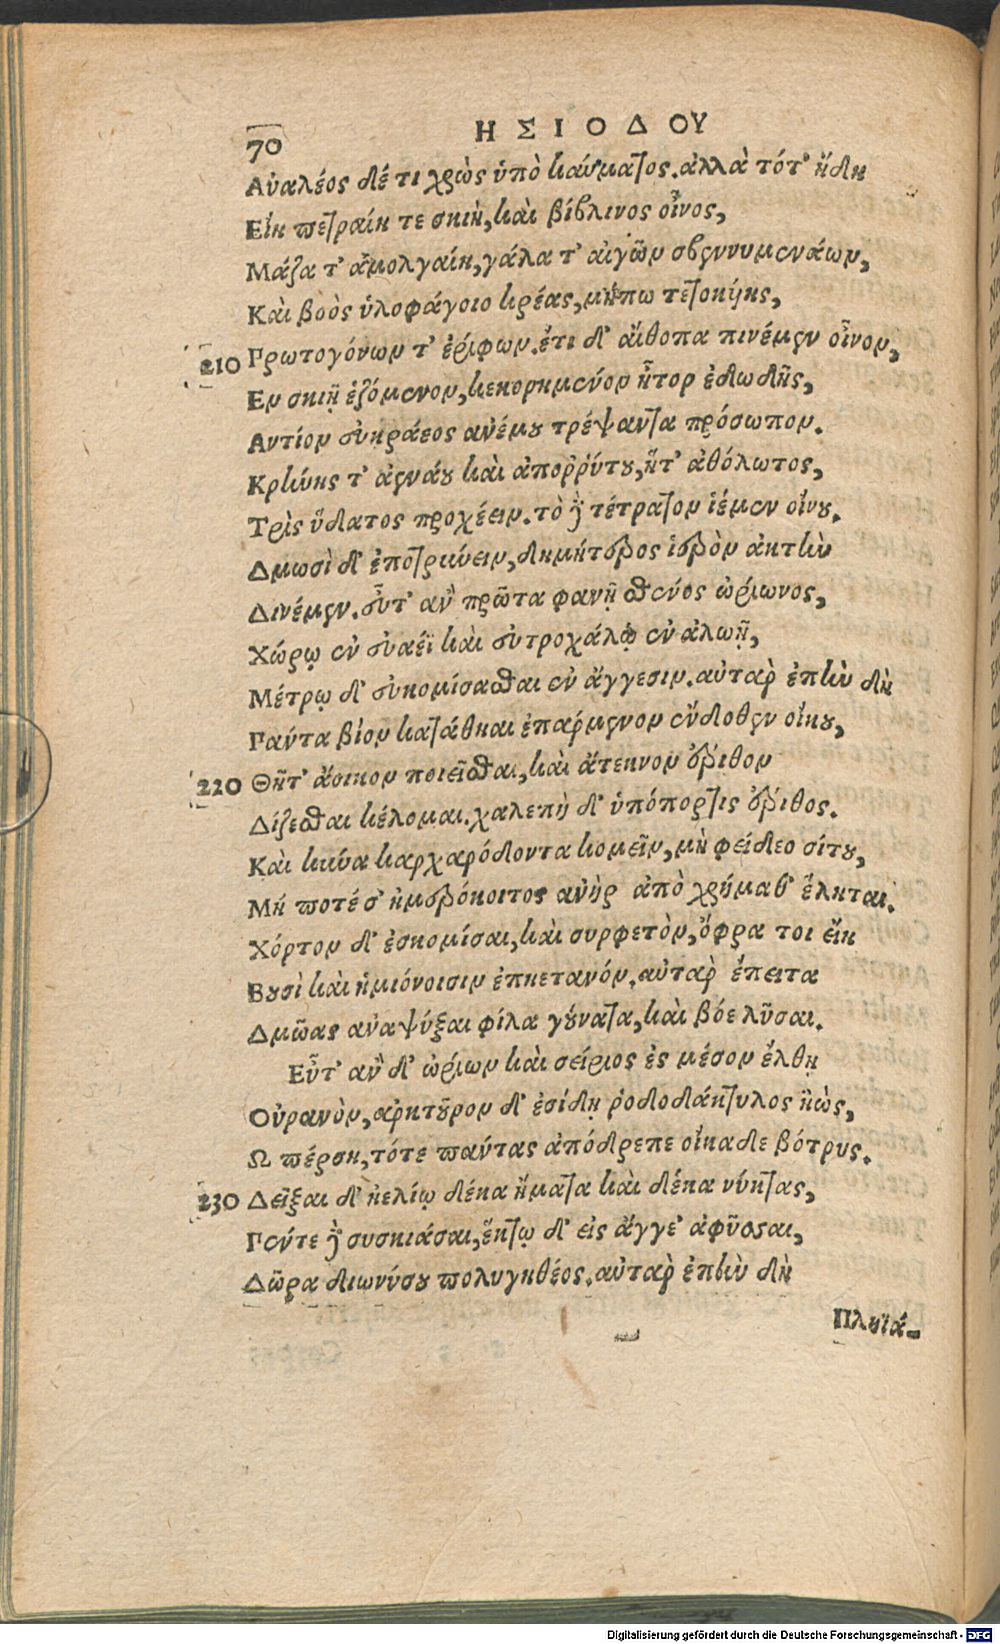 70
ΗΣΙΟΔΟΥ
Αὐαλέος δέ τι χρὼς ὑπὸ καύματος. ἀλλὰ τότ' ἤδη
Εἴη πετραίη τε σκιὴ, καὶ βίβλινος οἶνος,
Μάζα τ' ἀμολγαίη, γάλα τ' αἰγῶν σβεννυμενάων,
Καὶ βοὸς ὑλοφάγοιο κρέας, μήπω τετοκήης,
210 Πρωτογόνων τ' ἐρίφων. ἔτι δ' αἴθοπα πινέμεν οἶνον,
Εν σκιῇ ἑζόμενον, κεκορημένον ἦτορ ἐδωδῆς,
Αντίον εὐκράεος ἀνέμου τρέψαντα πρόσωπον.
Κρήνης τ' ἀενάου καὶ ἀποῤῥύτου, ἥτ' ἀθόλωτος,
Τρὶς ὕδατος προχέειν. τὸ δὲ τέτρατον ἱέμεν οἴνου.
Δμωσὶ δ' ἐποτρύνειν, δημήτερος ἱερὸν ἀκτὴν
Δινέμεν. εὖτ' ἂν πρῶτα φανῇ σθένος ὠρίωνος,
Χώρῳ ἐν εὐαέϊ καὶ εὐτροχάλῳ ἐν ἀλωῇ,
Μέτρῳ δ' εὐκομίσασθαι ἐν ἄγγεσιν. αὐτὰρ ἐπὴν δὴ
Πάντα βίον κατάθηαι ἐπάρμενον ἔνδοθεν οἴκου,
220 Θῆτ' ἄοικον ποιεῖσθαι, καὶ ἄτεκνον ἔριθον
Δίζεσθαι κέλομαι. χαλεπὴ δ' ὑπόπορτις ἔριθος.
Καὶ κύνα καρχαρόδοντα κομεῖν, μὴ φείδεο σίτου,
Μή ποτέ σ' ἡμερόκοιτος ἀνὴρ ἀπὸ χρήμαθ' ἕληται.
Χόρτον δ' ἐσκομίσαι, καὶ συρφετὸν, ὄφρα τοι εἴη
Βουσὶ καὶ ἡμιόνοισιν ἐπηετανόν. αὐτὰρ ἔπειτα
Δμῶας ἀναψύξαι φίλα γούνατα, καὶ βόε λῦσαι.
Εὖτ' ἂν δ' ὠρίων καὶ σείριος ἐς μέσον ἔλθῃ
Οὐρανὸν, ἀρκτοῦρον δ' ἐσίδῃ ῥοδοδάκτυλος ἠὼς,
Ω πέρση, τότε πάντας ἀπόδρεπε οἴκαδε βότρυς.
230 Δεῖξαι δ' ἠελίῳ δέκα ἤματα καὶ δέκα νύκτας,
Πέντε δὲ συσκιάσαι, ἕκτῳ δ' εἰς ἄγγε' ἀφῦσαι,
Δῶρα διωνύσου πολυγηθέος. αὐτὰρ ἐπὴν δὴ
Πληϊά-
Digitalisierung gefördert durch die Deutsche Forschungsgemeinschaft - DFG